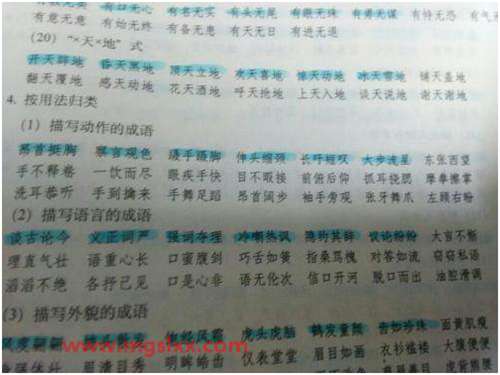 有口无心 有名无实 有头无尾 有眼无珠 有勇无谋 有恃无恐 有气
有意无意 有始无终 有备无患 有天无日 有进无退
(20) “×天×地”式
开天辟地 昏天黑地 顶天立地 欢天喜地 惊天动地 冰天雪地 铺天盖地
翻天覆地 感天动地 花天酒地 呼天抢地 上天入地 谈天说地 谢天谢地
4. 按用法归类
(1) 描写动作的成语
昂首挺胸 察言观色 蹑手蹑脚 伸头缩颈 长吁短叹 大步流星 东张西望
手不释卷 一饮而尽 眼疾手快 目不暇接 前俯后仰 抓耳挠腮 摩拳擦掌
洗耳恭听 手到擒来 手舞足蹈 昂首阔步 袖手旁观 张牙舞爪 左顾右盼
(2) 描写语言的成语
谈古论今 义正词严 强词夺理 冷嘲热讽 隐约其辞 议论纷纷 大言不惭
理直气壮 语重心长 口蜜腹剑 巧舌如簧 指桑骂槐 对答如流 窃窃私语
滔滔不绝 各抒己见 口是心非 语无伦次 信口开河 脱口而出 油腔滑调
(3) 描写外貌的成语
虎头虎脑 鹤发童颜 面黄肌瘦
眉清目秀 明眸皓齿 仪表堂堂 眉目如画 衣衫褴褛 大腹便便